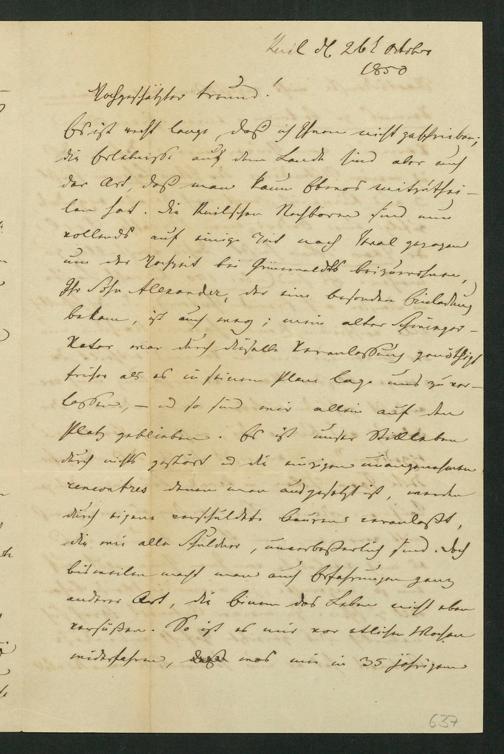 Keil d 26t October
1850
Hochgeschätzter Freund!
Es ist recht lange, daß ich Ihnen nicht geschrieben;
die Erlebnisse auf dem Lande sind aber auch
der Art, daß man kaum Etwas mitzuthei-
len hat. Die Keilschen Nachbaren sind nun
vollends auf einige Zeit nach gezogen
um der Hochzeit bei Grünewaldts beizuwohnen,
Ihr Sohn Alexander, der eine besondere Einladung
bekam, ist auch weg; mein alter Schwieger-
Vater war durch dieselbe Veranlassung genöthigt
früher als es in seinem Plane lage uns zu ver-
lassen, – u so sind wir allein auf dem
Platz geblieben. Es ist unser Stillleben
durch nichts gestört u die einzigen unangenehmen
rencontres denen man ausgesetzt ist, werden
durch eigene verschuldete Bauern veranlaßt,
die mir alle schulden, unverbesserlich sind. Doch
bisweilen macht man auch Erfahrungen ganz
anderer Art, die Einem das Leben nicht eben
versüßen. So ist es mir vor etlichen Wochen
widerfahren, was mir in 35 jährigem
637